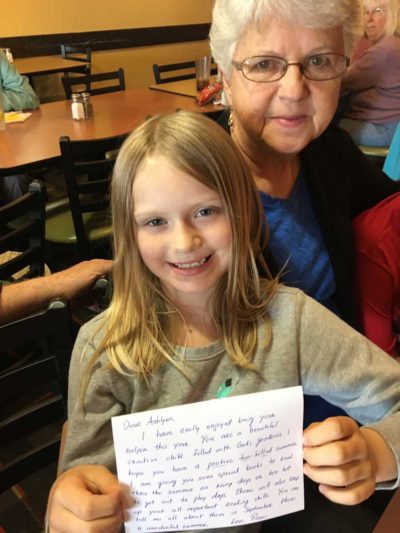 Dear Ashlyn,
I have really enjoyed being your
helper this year. You are a beautiful
creative child filled with God's goodness. I
hope you have a positive fun-filled summer.
I am giving you some special books to read
thru the summer on rainy days or too hot
to get out to play days. These will also keep
up your all important reading skills. You can
tell me all about them in September. Have
a wonderful summer. Love,